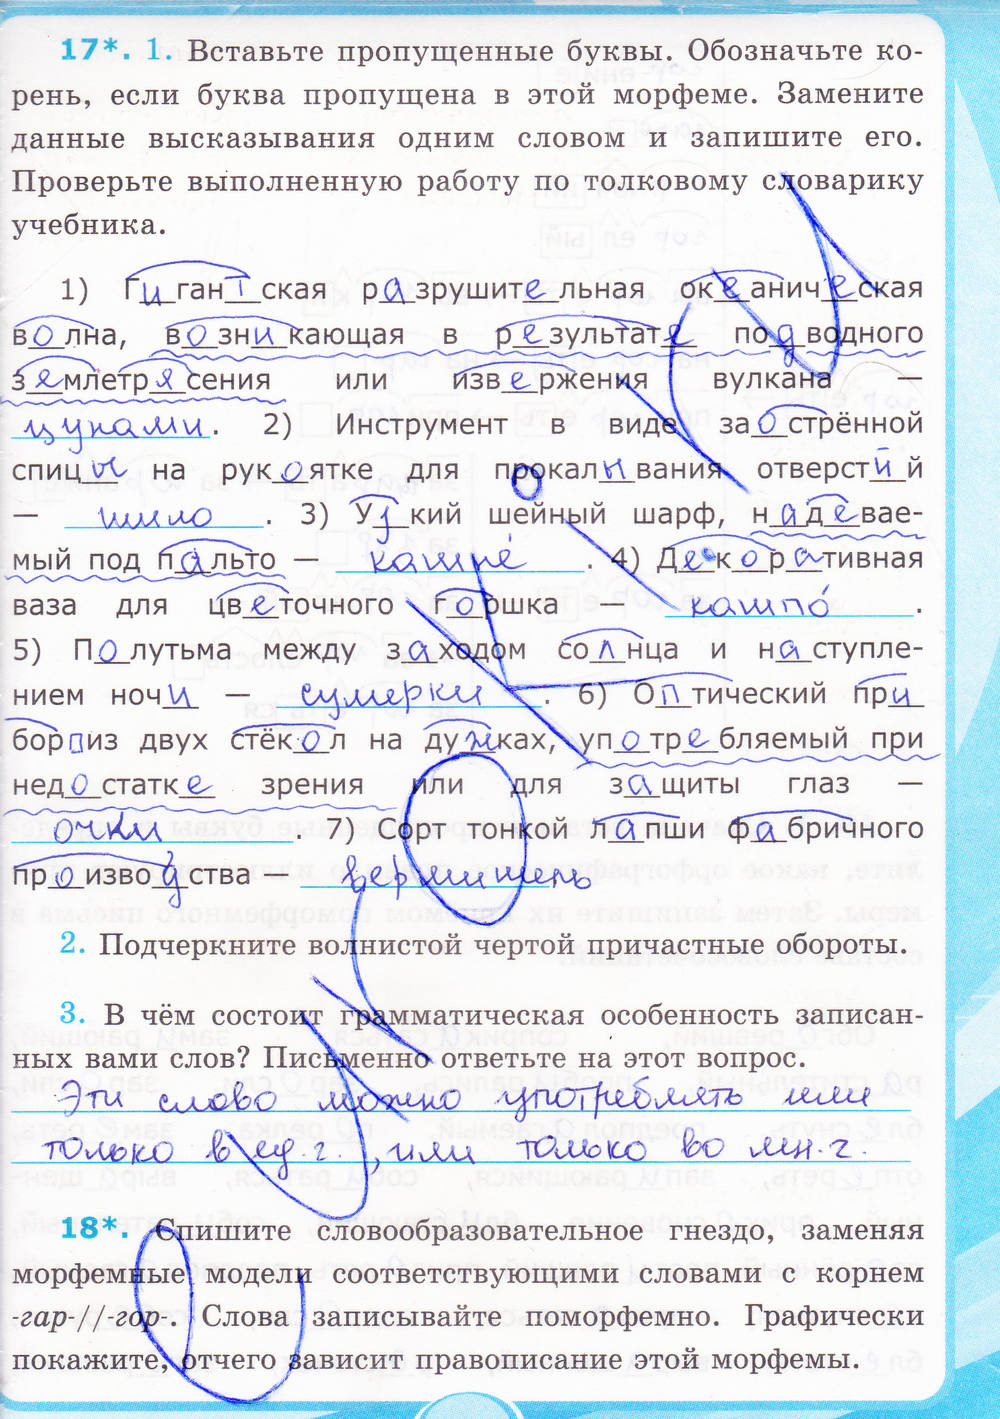 17*. 1. Вставьте пропущенные буквы. Обозначьте ко-
рень, если буква пропущена в этой морфеме. Замените
данные высказывания одним словом и запишите его.
Проверьте выполненную работу по толковому словарику
учебника.
1) Гигантская разрушительная океаническая
волна, возникающая в результате подводного
землетрясения или извержения вулкана —
цунами. 2) Инструмент в виде заострённой
спицы на рукоятке для прокалывания отверстий
— шило. 3) Узкий шейный шарф, надевае-
мый под пальто — кашне. 4) Декоративная
ваза для цветочного горшка — кашпо.
5) Полутьма между заходом солнца и наступле-
нием ночи — сумерки. 6) Оптический при
бор из двух стёкол на дужках, употребляемый при
недостатке зрения или для защиты глаз —
очки. 7) Сорт тонкой лапши фабричного
производства — вермишель
2. Подчеркните волнистой чертой причастные обороты.
3. В чём состоит грамматическая особенность записан-
ных вами слов? Письменно ответьте на этот вопрос.
Эти слова можно употреблять или
только в ед. г., или только во мн. г.
18*. Спишите словообразовательное гнездо, заменяя
морфемные модели соответствующими словами с корнем
-гар-//-гор-. Слова записывайте поморфемно. Графически
покажите, отчего зависит правописание этой морфемы.